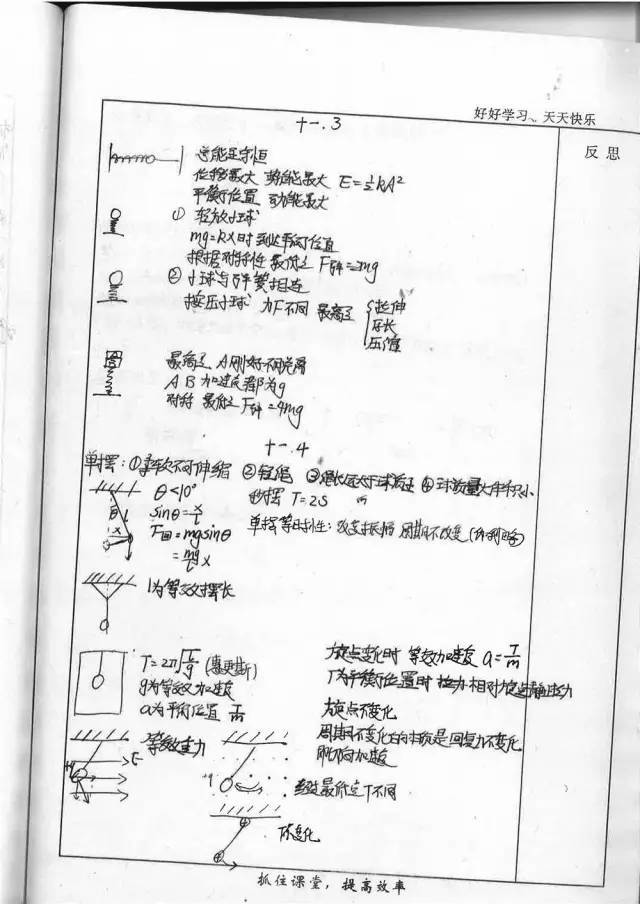 好好学习、天天快乐
反思
十一.3
总能量守恒
位移最大 势能最大 E=½kA²
平衡位置 动能最大
① 轻放小球
mg=kx时 到达平衡位置
根据对称性 最低点 F弹=2mg
② 小球与弹簧相连
按压小球 力F不同 最高点 {拉伸
原长
压缩
最高点 A刚好不脱离
AB加速度都为g
对称 最低点 F弹=4mg
十一.4
单摆：①柔软不可伸缩 ②轻绳 ③绳长远大于球直径 ④球质量大体积小
θ<10° 秒摆 T=2S
sinθ=x/l
单摆等时性：改变振幅 周期不改变(伽利略)
F回=mgsinθ
=mg/l x
θ l
x
l为等效摆长
T=2π√(l/g) (惠更斯)
g为等效加速度
a为平衡位置 T/m
悬点变化时 等效加速度 a=T/m
T为平衡位置时拉力 相对悬点静止
悬点不变化
周期不变化的本质是回复力不变化
等效重力
E
经过最低点T不同
T不变化
抓住课堂，提高效率